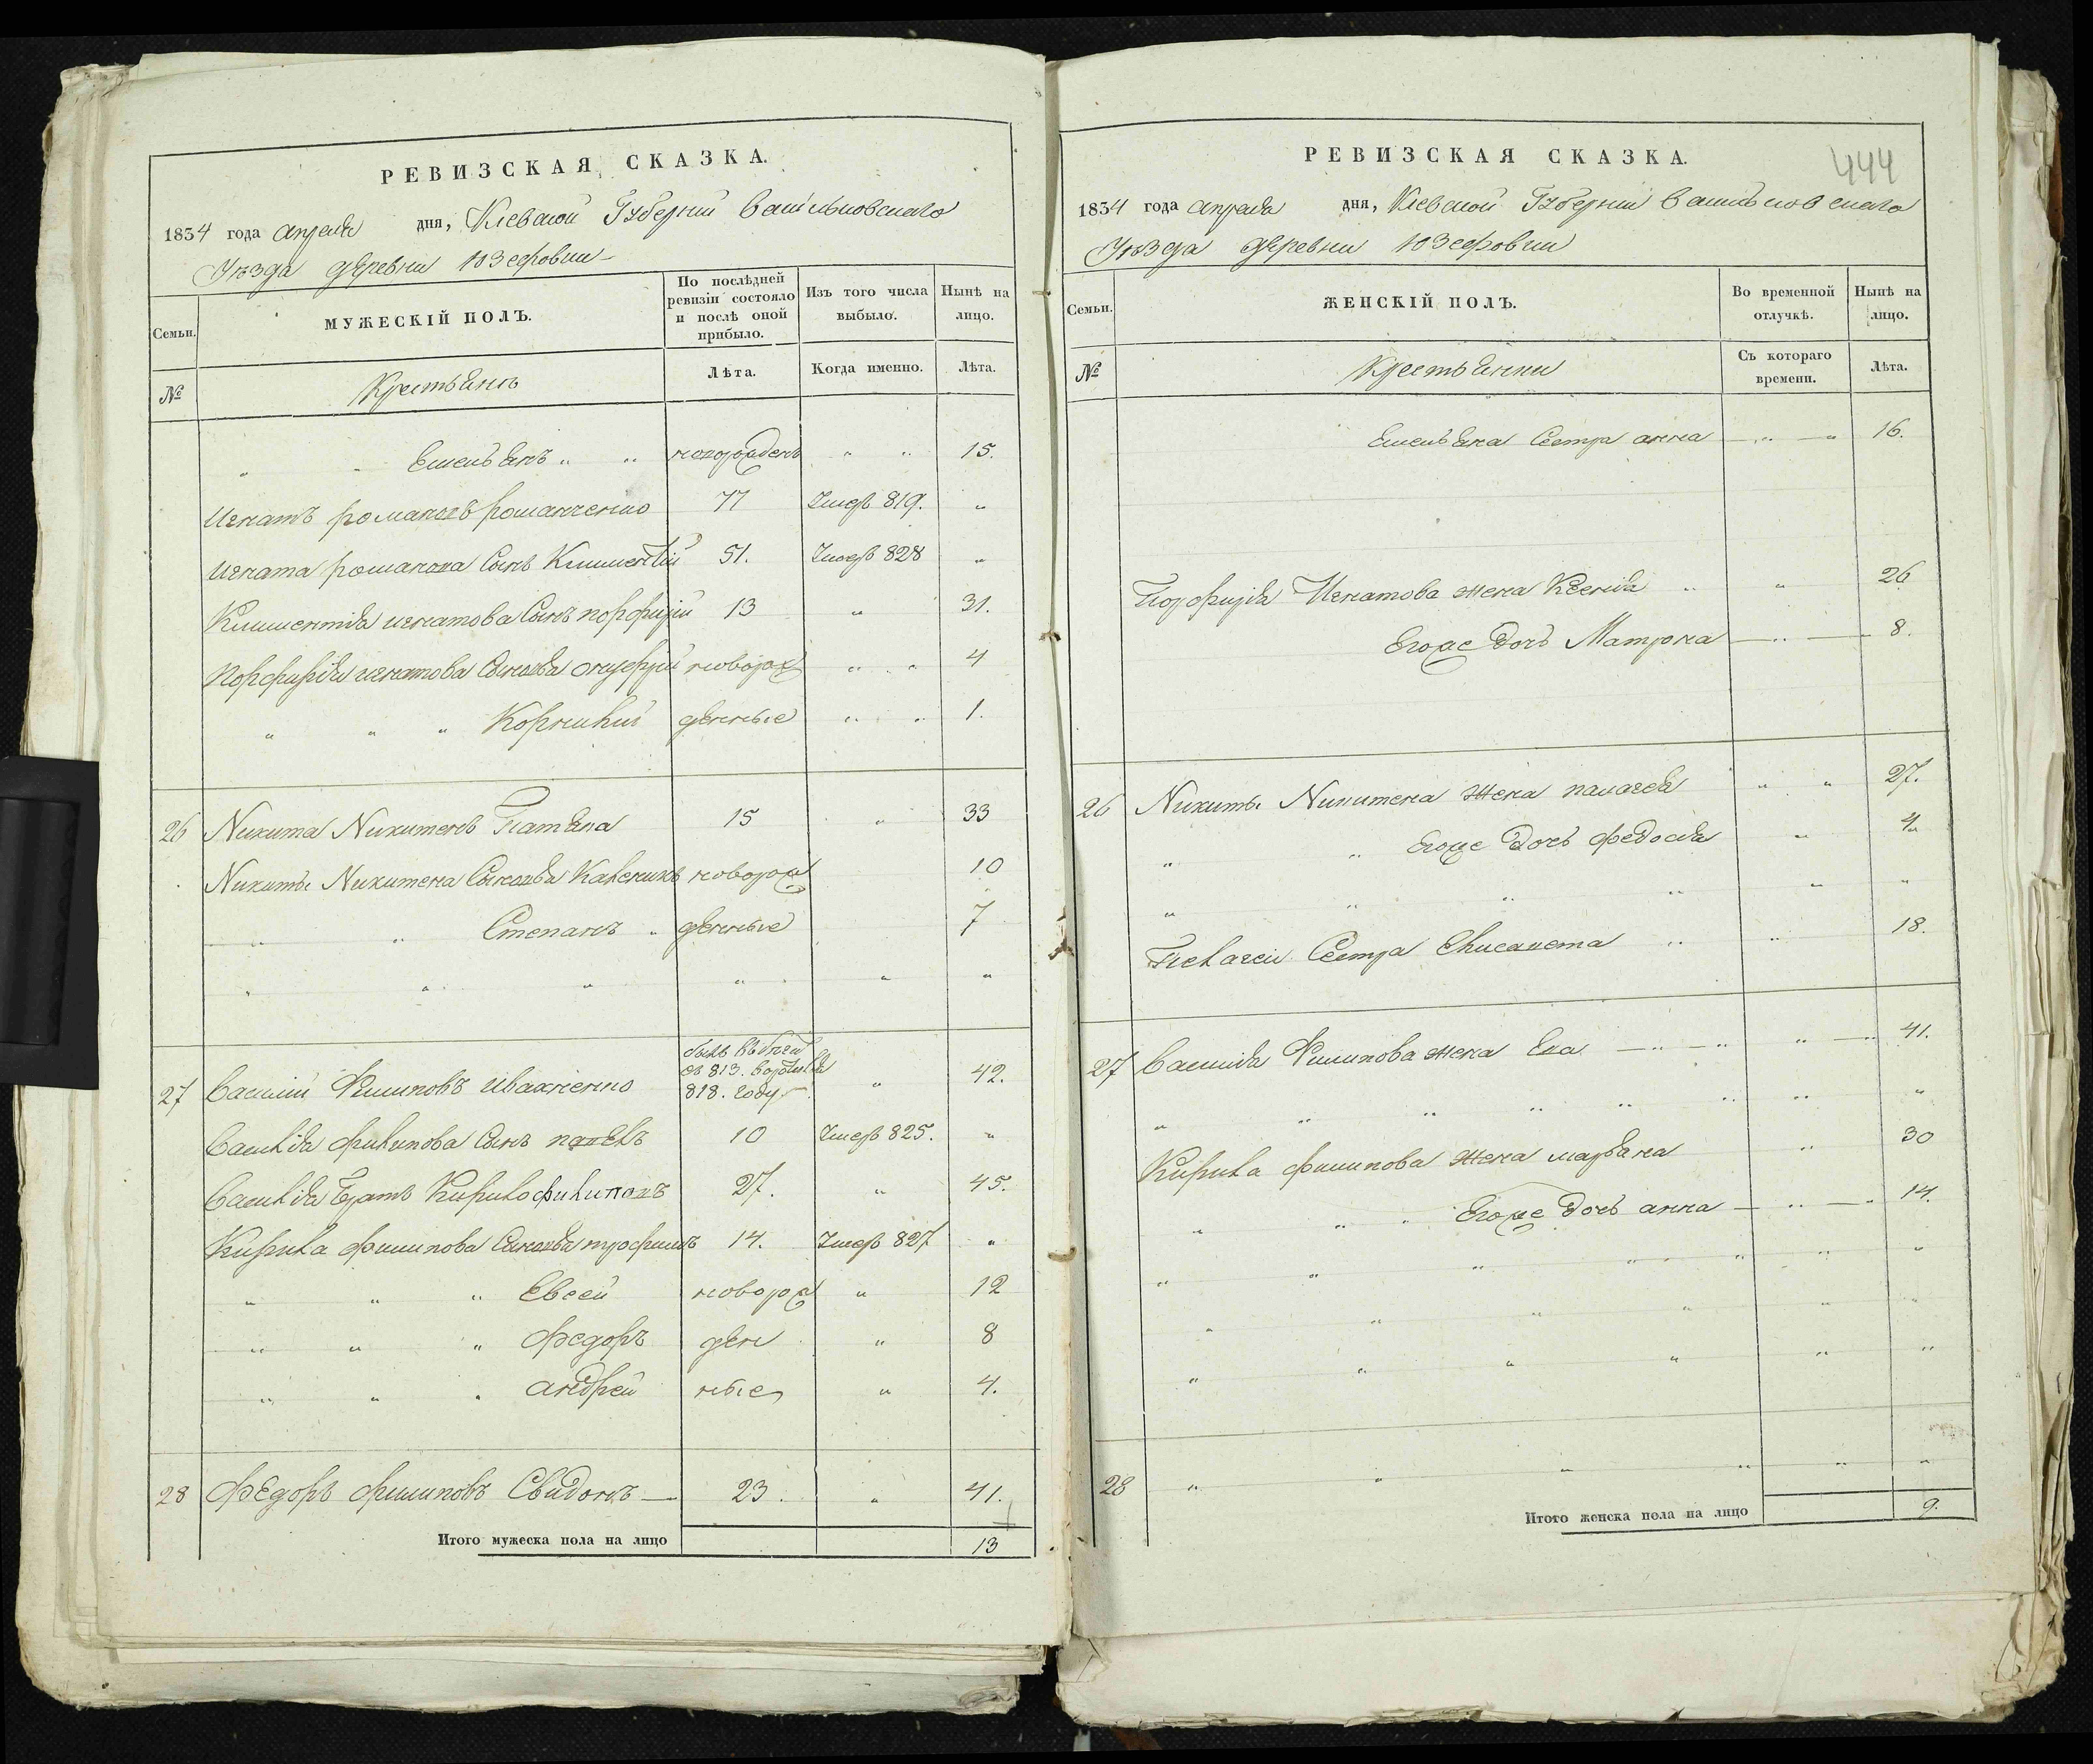 РЕВИЗСКАЯ СКАЗКА.
1834 года апреля дня, Киевской Губернии Васильковского
Уезда деревни Юзефовки
Семьи. МУЖЕСКІЙ ПОЛЪ. По послѣдней ревизіи состояло и послѣ оной прибыло. Изъ того числа выбыло. Нынѣ на лицо.
№ Крестьянъ Лѣта. Когда именно. Лѣта.
" " Емельянъ " " новорожденъ " " 15.
Игнатъ романовъ романченко 77 Умеръ 819. "
Игната романова Сынъ Климентій 51. Умеръ 828 "
Климентія игнатова Сынъ порфирій 13 " 31.
Порфирія игнатова Сыновья онуфрій новорож " " 4
" " " Корнилий денные " " 1.
26 Никита Никитенъ 15 " 33
Никиты Никитена Сыновья Каленикъ новорож 10
" " Степанъ " денные 7
" " " " " "
27 Василий Филиповъ Ивахненко былъ въ бегах съ 813. воротился 818. году " 42.
Василія филипова Сынъ павелъ 10 Умеръ 825. "
Василія Братъ Кирило филиповъ 27. " 45.
Кирила филипова Сыновья трофимъ 14. Умеръ 827 "
" " " Евсей новорож " 12
" " " Федоръ ден " 8
" " " андрей ные " 4.
28 Федоръ филиповъ Свидокъ 23. " 41.
Итого мужеска пола на лицо 13
444
РЕВИЗСКАЯ СКАЗКА.
1834 года апреля дня, Киевской Губернии Васильковского
Уезда деревни Юзефовки
Семьи. ЖЕНСКІЙ ПОЛЪ. Во временной отлучкѣ. Нынѣ на лицо.
№ Крестьянки Съ котораго времени. Лѣта.
Емельяна Сестра анна " " 16.
Порфирія Игнатова жена Ксенія " " 26
Егоже дочь Матрона " 8.
26 Никиты Никитена Жена палагея " " 27.
" " Егоже дочь федосья " 4
" " " " " "
Пелагеи Сестра Елисавета " " 18.
27 Василія Филипова жена Ева " " " " 41.
" " " " " " " "
Кирила филипова Жена марьяна " 30
" " " Егоже дочь анна " " 14.
" " " " " " "
" " " " " "
" " " " " "
28 " " " " " "
Итого женска пола на лицо 9.